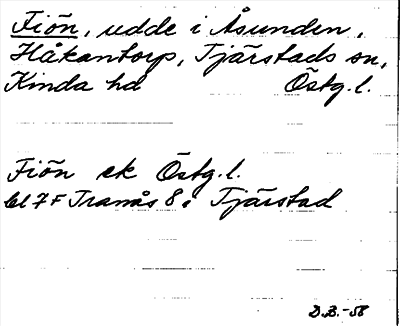 Fiön, udde i Åsunden,
Håkantorp, Tjärstads sn,
Kinda hd Östg.l.
Fiön ek Östg.l.
bl 7F Tranås 8 i Tjärstad
D.B.-58